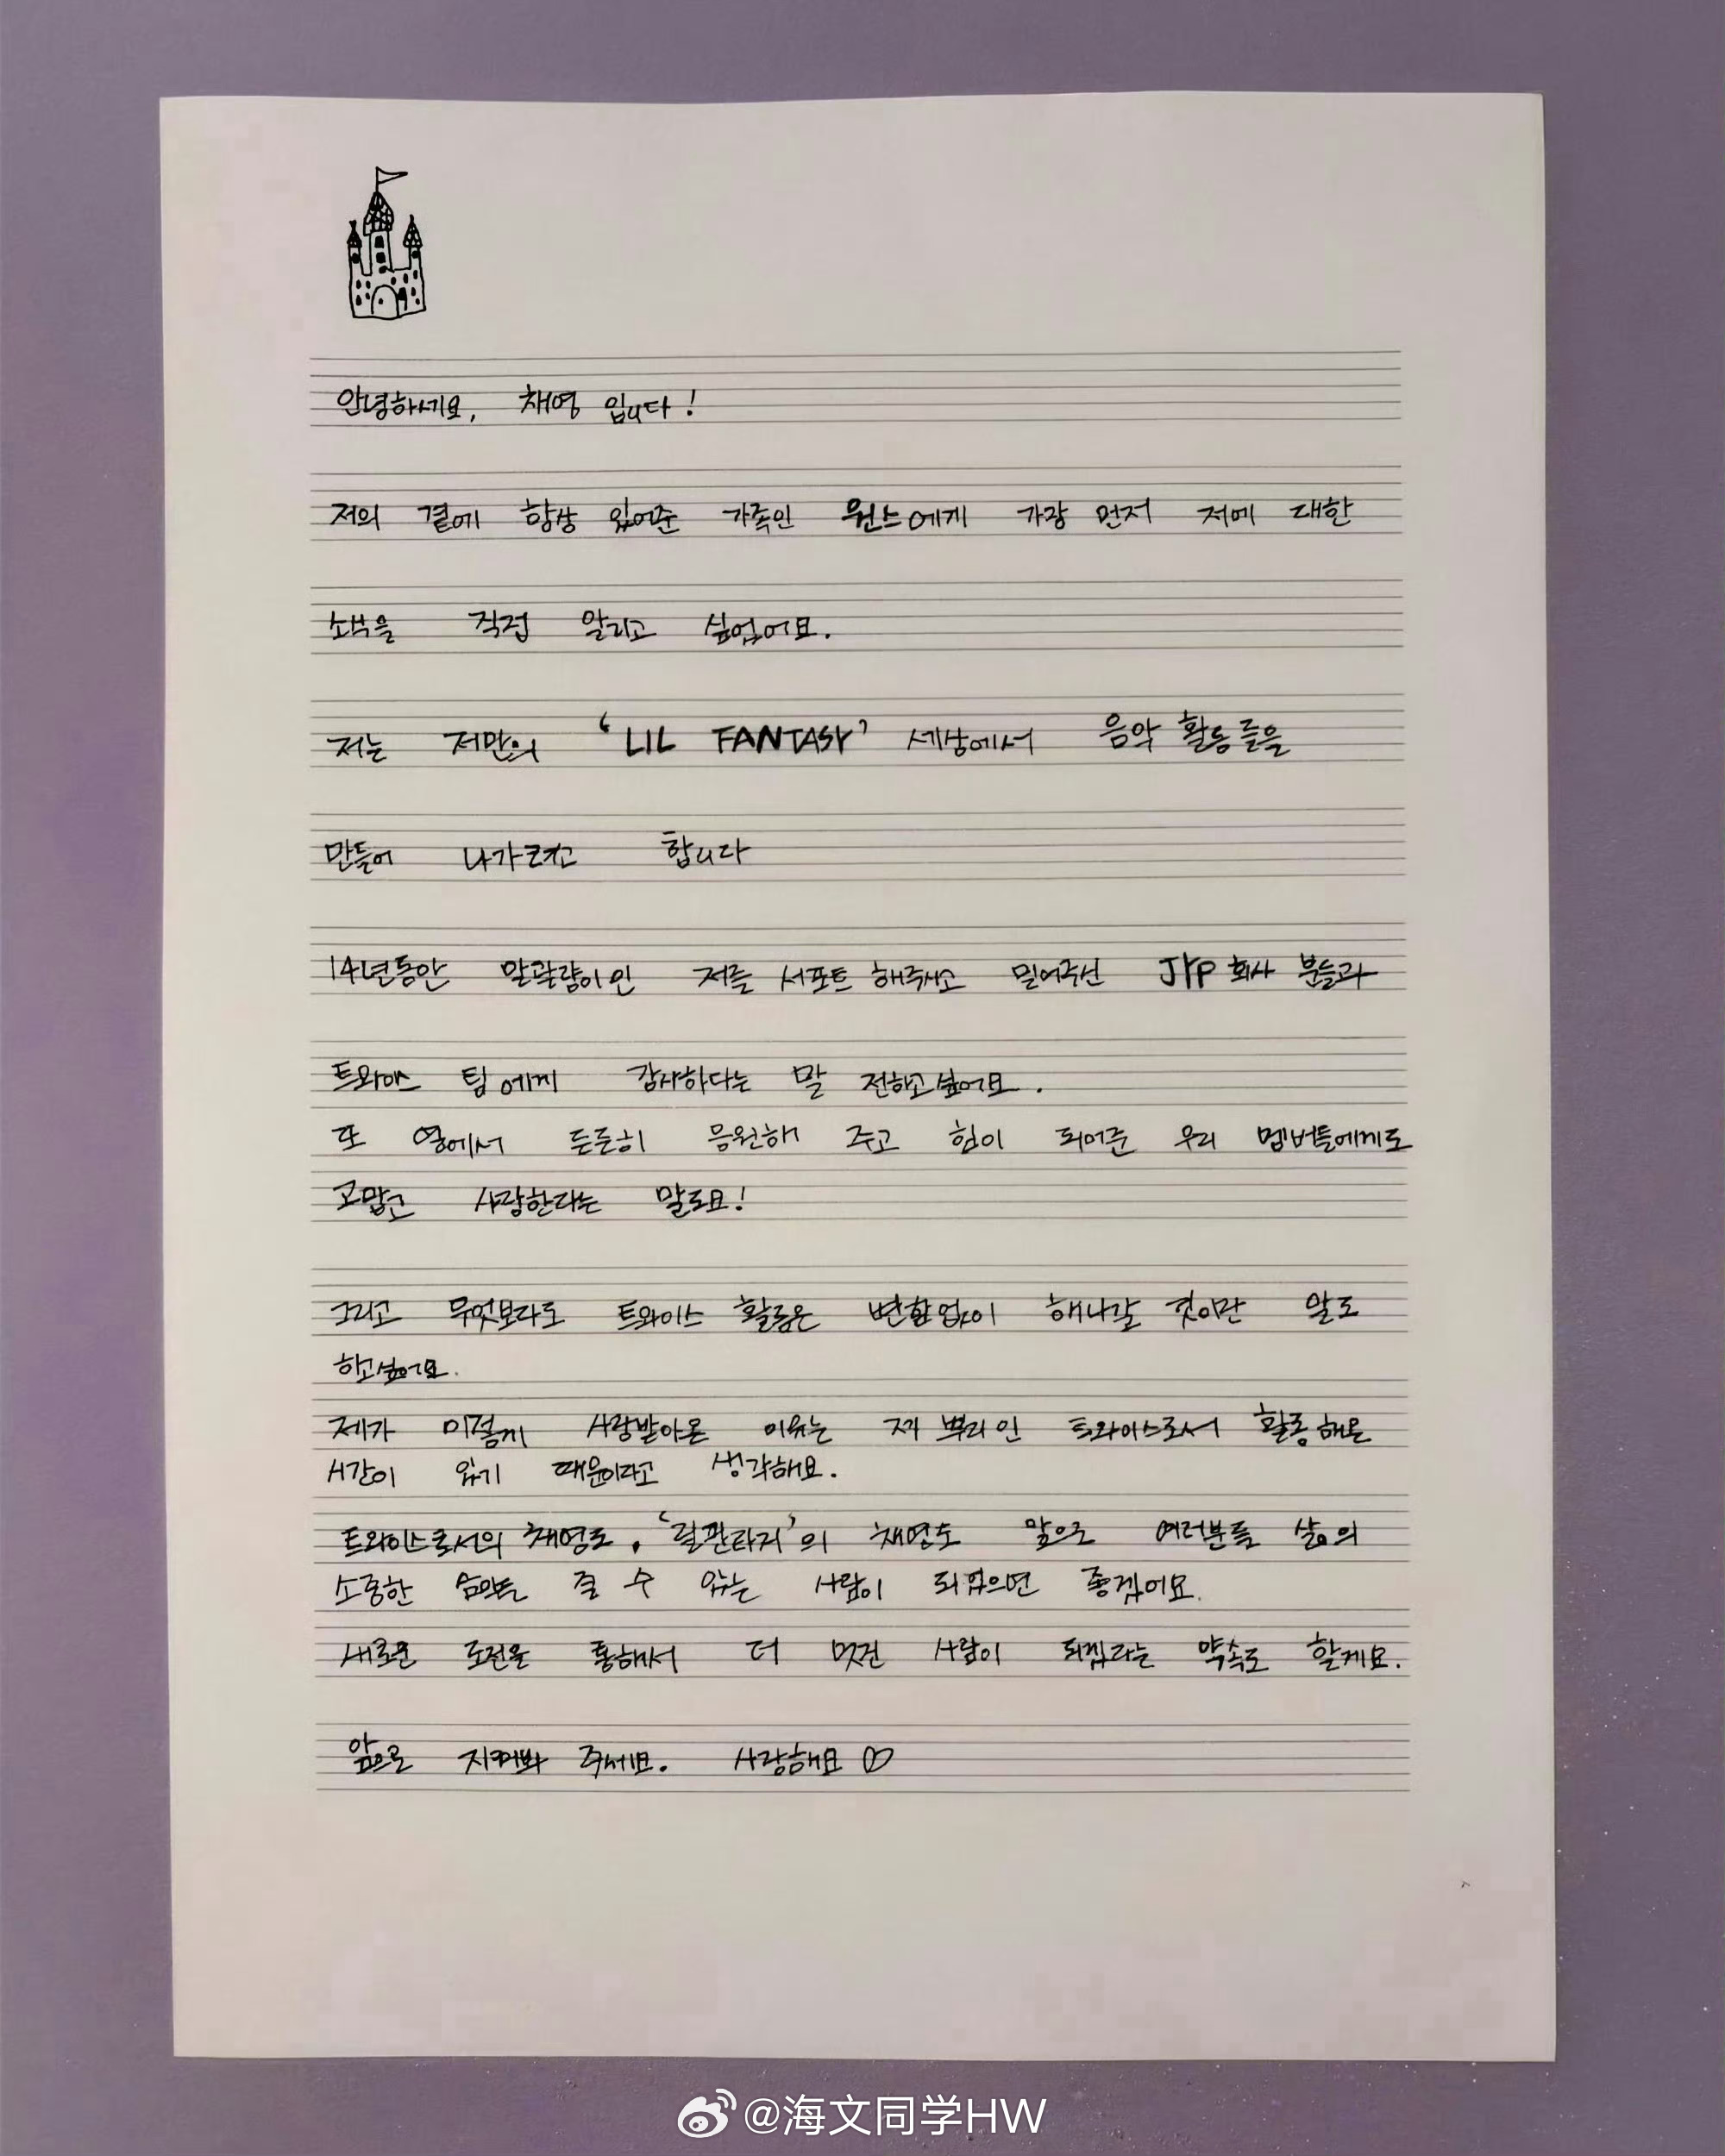 안녕하세요, 채영 입니다!
저의 곁에 항상 있어준 가족인 원스에게 가장 먼저 저에 대한
소식을 직접 알리고 싶었어요.
저는 저만의 'LIL FANTASY' 세상에서 음악 활동들을
만들어 나가려고 합니다
14년동안 말괄량이인 저를 서포트 해주시고 밀어주신 JYP 회사 분들과
트와이스 팀에게 감사하다는 말 전하고싶어요.
또 옆에서 든든히 응원해 주고 힘이 되어준 우리 멤버들에게도
고맙고 사랑한다는 말도요!
그리고 무엇보다도 트와이스 활동은 변함없이 해나갈 것이란 말도
하고싶어요.
제가 이렇게 사랑받아온 이유는 제 뿌리인 트와이스로서 활동해온
시간이 있기 때문이라고 생각해요.
트와이스로서의 채영도, '릴판타지'의 채영도 앞으로 여러분들 삶의
소중한 순간을 줄 수 있는 사람이 되었으면 좋겠어요.
새로운 도전을 통해서 더 멋진 사람이 되겠다는 약속도 할게요.
앞으로 지켜봐 주세요. 사랑해요♡
@海文同学HW